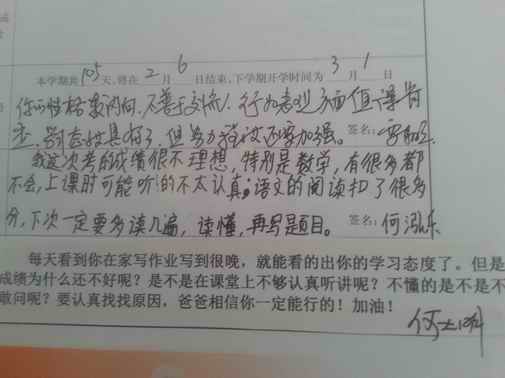 本学期共105天,将在2月6日结束,下学期开学时间为3月1日
你的性格较内向,不善于交流!行为表现方面值得肯
定,学习态度具有了,但努力程度还要加强。签名:
我这次考的成绩很不理想,特别是数学,有很多都
不会,上课时可能听的不太认真;语文的阅读扣了很多
分,下次一定要多读几遍,读懂,再写题目。签名:何泓乐
每天看到你在家写作业写到很晚,就能看的出你的学习态度了。但是
成绩为什么还不好呢?是不是在课堂上不够认真听讲呢?不懂的是不是不
敢问呢?要认真找找原因,爸爸相信你一定能行的!加油!